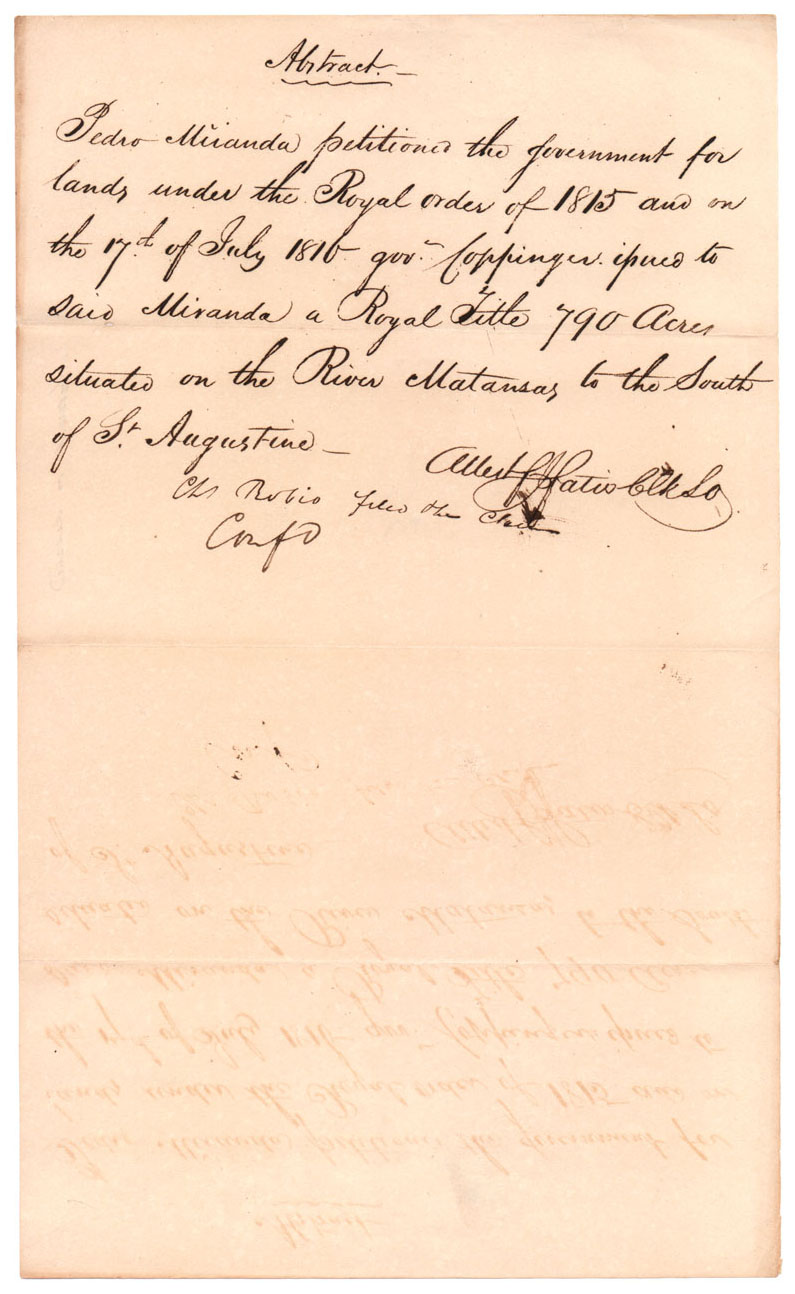 Abstract.
Pedro Miranda petitioned the government for
lands under the Royal order of 1815 and on
the 17th of July 1816 govr. Coppinger issued to
said Miranda a Royal Title 790 Acres
situated on the River Matansas to the South
of St. Augustine
Attest F J Fatio Clk
Filed the Claim
Confd